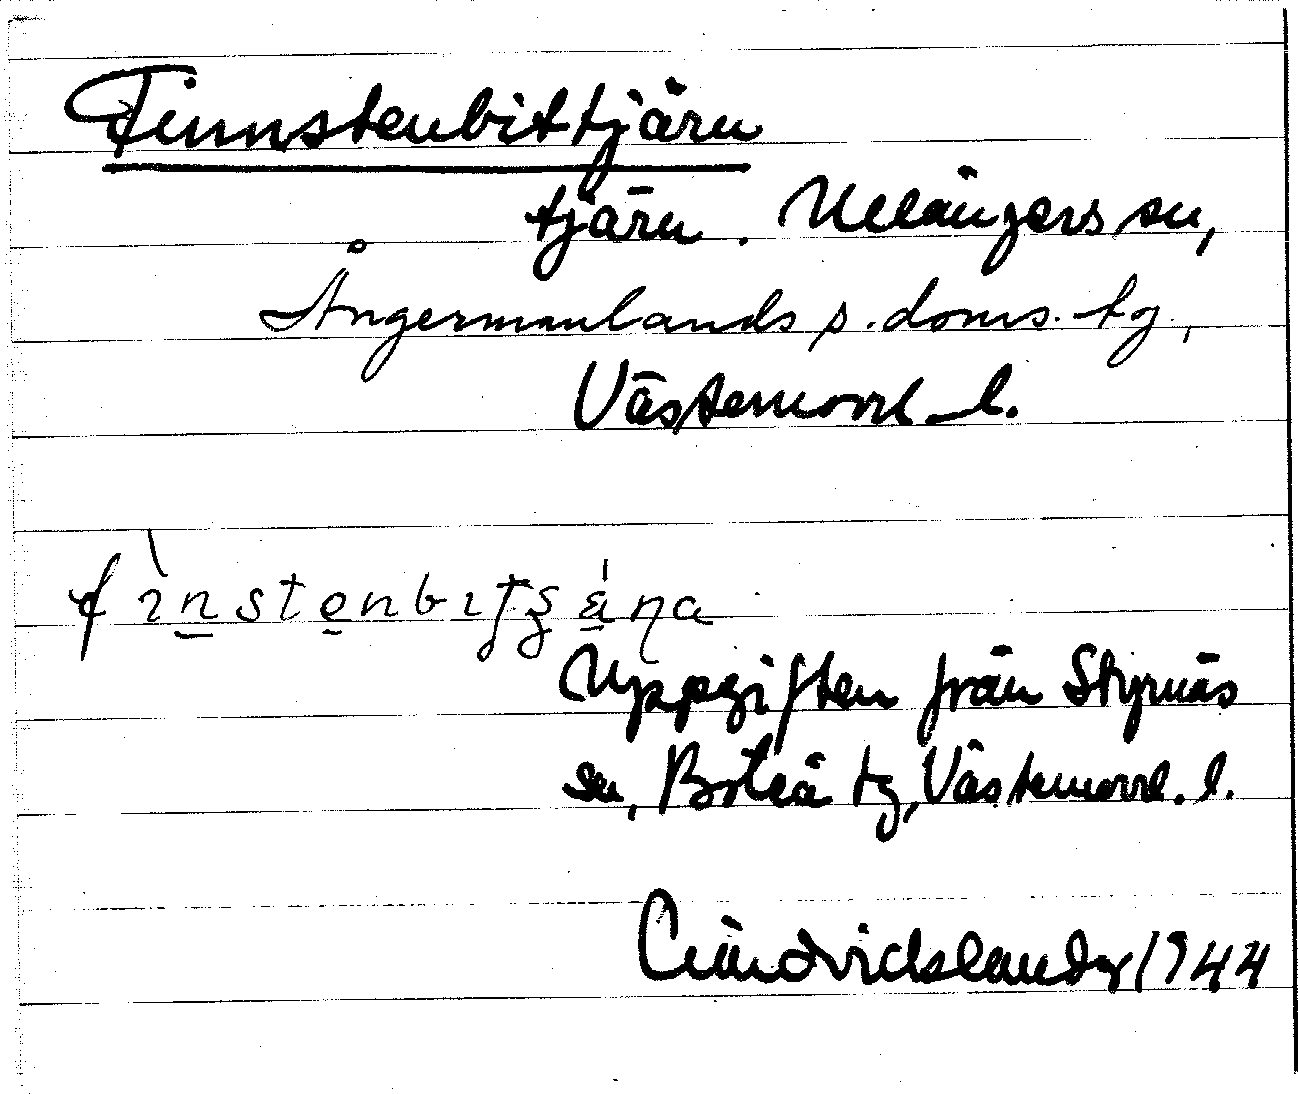 Finnstenbittjärn
tjärn. Ullångers sn,
Ångermanlands s. doms. tg,
Västernorrl. l.
fìnstenbıtʂɛ́ɳa
Uppgiften från Styrnäs
sn, Boteå tg, Västernorrl. l.
1944